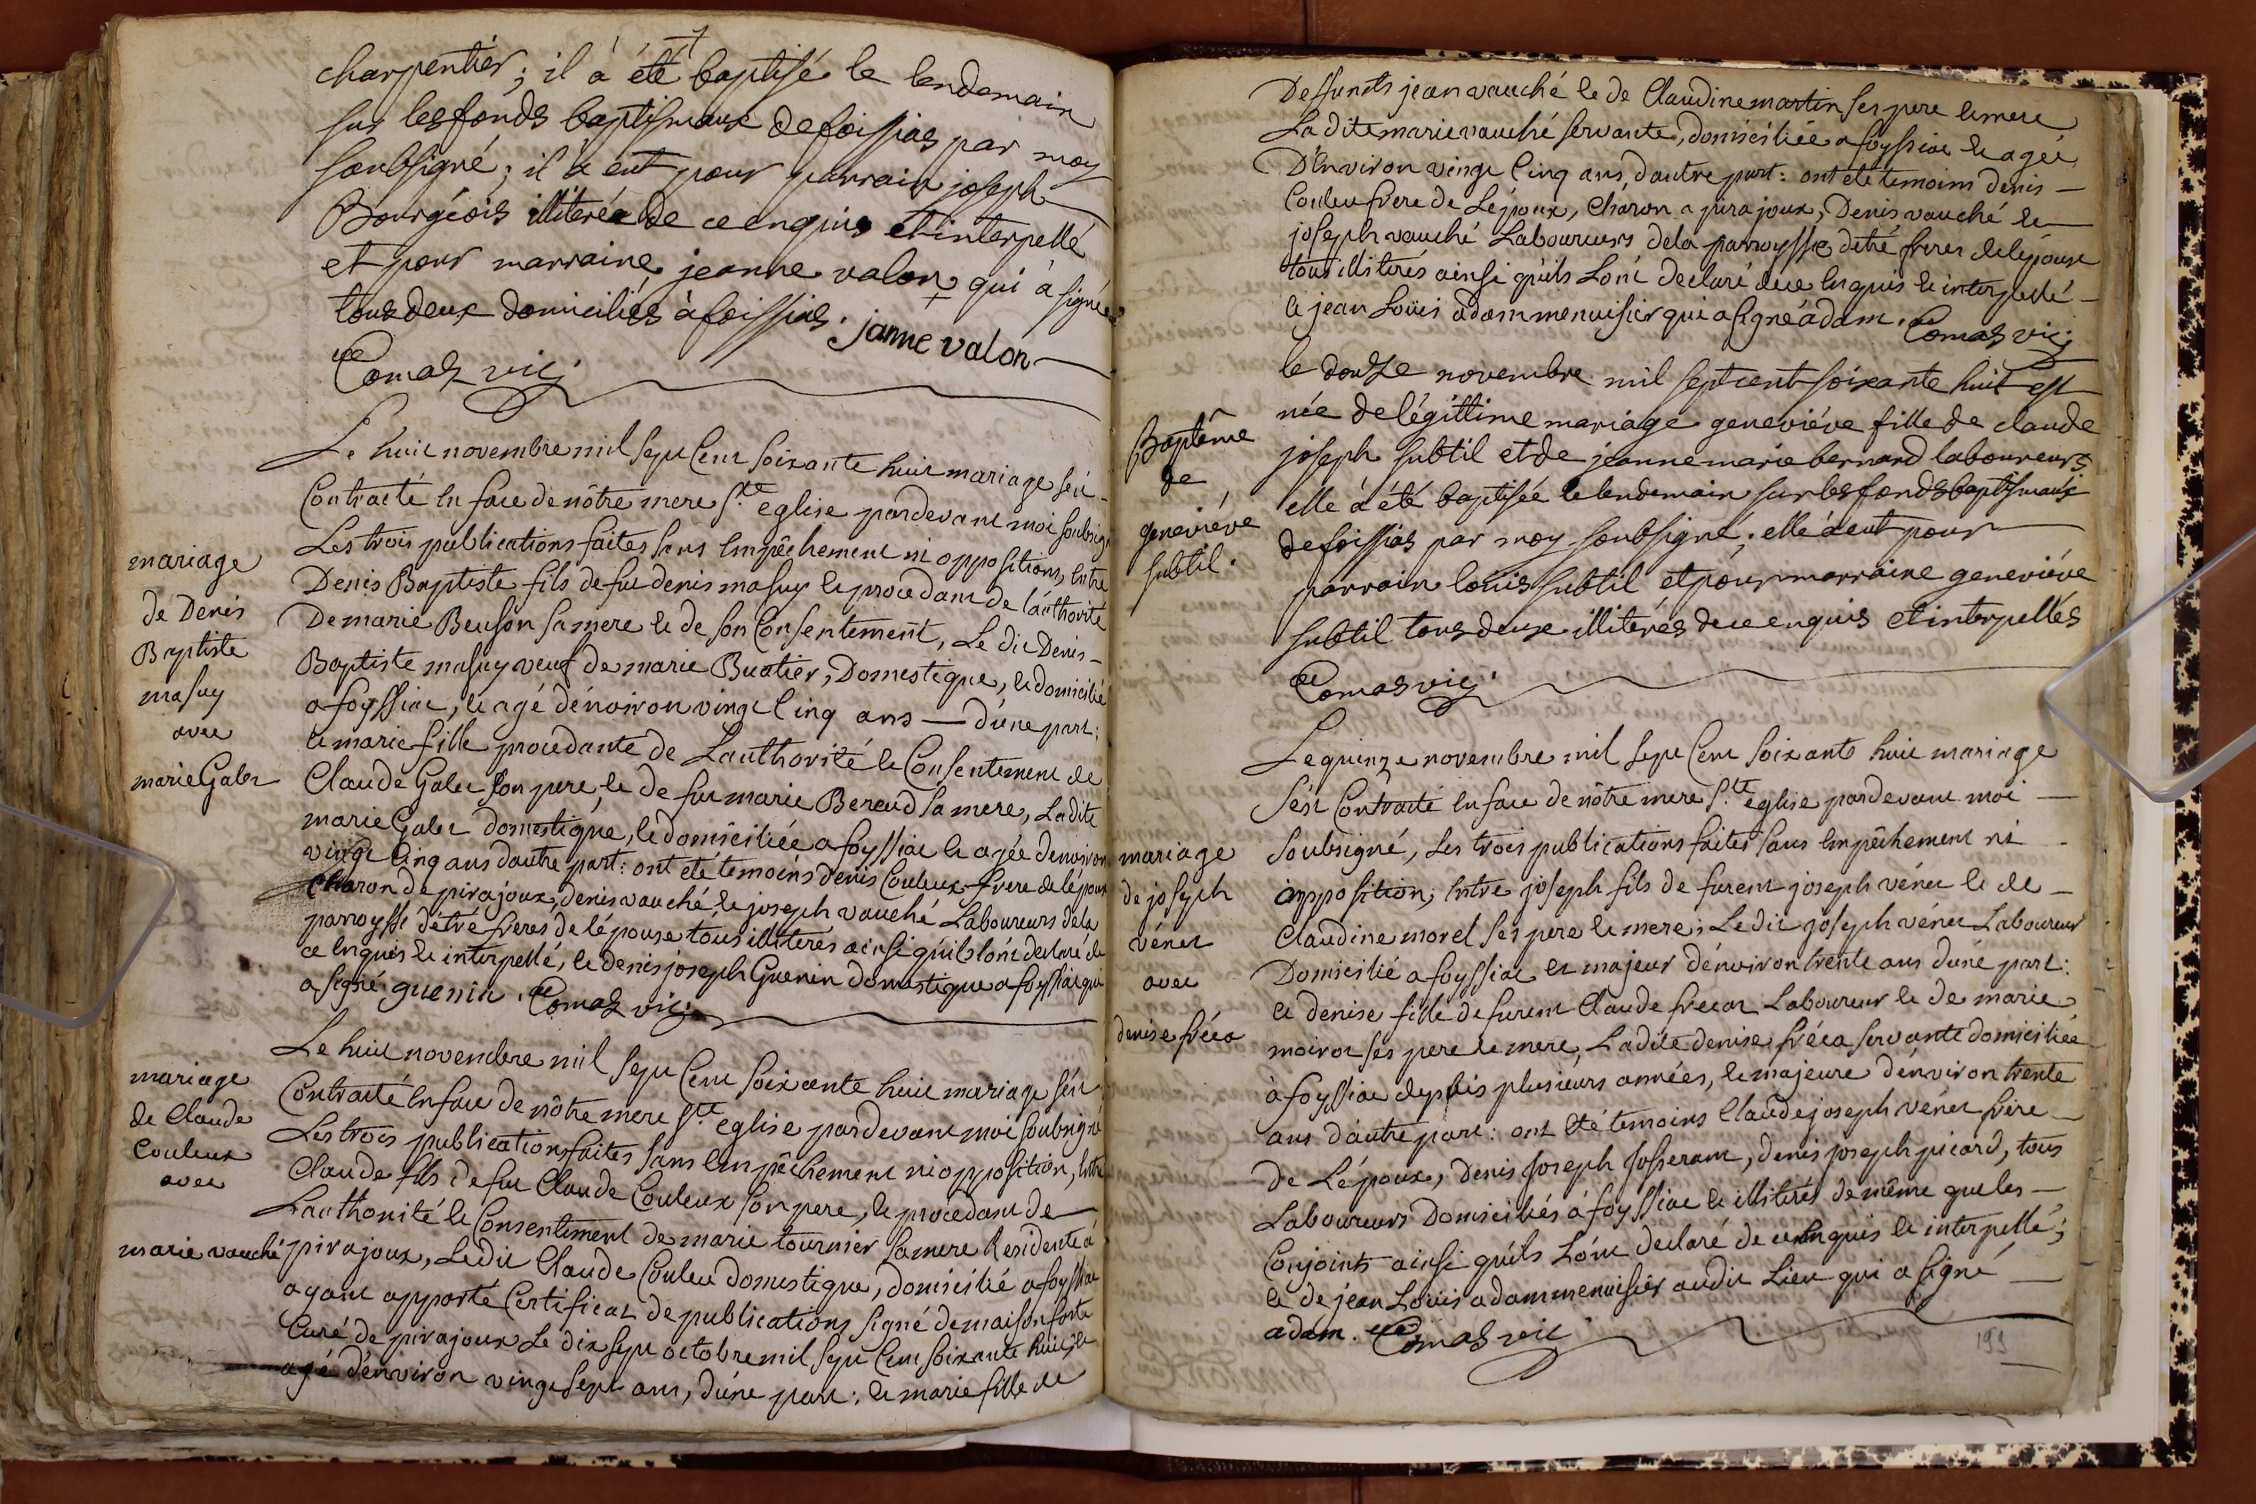 charpentier; il à été baptisé le lendemain
sur les fonds baptismaux de foissias par moy
soubsigné; il a eut pour parrain joseph
Bourgéois illiteré de ce enquis et interpellé
et pour marraine jeanne valon qui à signé
tous deux domiciliés à foissias. janne valon
Comas vic;
Le huit novembre mil sept Cent soixante huit mariage s'ét
Contracté en face de nôtre mere Ste eglise pardevant moi soubsigné
Les trois publications faites sans Empêchement ni opposition, Entre
Denis Baptiste fils de fu denis masuy et procedant de l'authorité
De marie Beuson sa mere et de son Consentement, Le dit Denis
Baptiste masuy veuf de marie Buatier, Domestique, et domicilié
a foyssiat, et agé d'environ vingt Cinq ans — d'une part;
et marie fille procedante de L'authorité et Consentement de
Claude Galet son pere et de fut marie Bereud sa mere, Ladite
marie Galet domestique, et domiciliée a foyssiat et agée d'environ
vingt Cinq ans d'autre part: ont eté temoins denis Couleux frere de l'époux
Charon de pirajoux, denis vauché, et joseph vauché Laboureurs de la
parroysse d'étré freres de l'épouse tous illiterés ainsi qu'ils l'ont declaré de
ce Enquis et interpellé, et denis joseph Guenin domestique a foyssiat qui
a signé. guenin. Comas vic;
Le huit novembre mil sept Cent soixante huit mariage s'ét
Contracté En face de nôtre mere Ste eglise pardevant moi soubsigné
Les trois publications faites sans Empêchement ni opposition, Entre
Claude fils de fut Claude Couleux son pere, et procedant de
L'authorité et Consentement de marie tournier sa mere Residente à
pirajoux, Ledit Claude Couleu domestique, domicilié a foyssiat
ayant apporté Certificat de publications signé de maisonforte
Curé de pirajoux Le dix sept octobre mil sept Cent soixante huit, et
agé d'environ vingt sept ans, d'une part; et marie fille de
mariage
de Denis
Baptiste
masuy
avec
marie Galet
mariage
de Claude
Couleux
avec
marie vauché
Deffunts jean vauché et de Claudine martin ses pere et mere
La dite marie vauché servante, domiciliée a foyssiat et agée
D'Environ vingt Cinq ans, d'autre part: ont eté temoins denis
Couleu frere de L'époux, Charon a pirajoux, Denis vauché et
joseph vauché Laboureurs de la parroysse d'étré freres de l'épouse
tous illiterés ainsi qu'ils L'ont declaré de ce Enquis et interpellé
et jean Louis adam menuisier qui a signé adam. Comas vic;
le douze novembre mil sept cent soixante huit est
née de légittime mariage geneviéve fille de claude
joseph subtil et de jeanne marie bernard laboureurs
elle à été baptisée le lendemain sur les fonds baptismaux
de foissias par moy soubsigné; elle a eut pour
parrain louis subtil et pour marraine geneviéve
subtil tous deux illiterés de ce enquis et interpellés
Comas vic;
Le quinze novembre mil sept Cent soixante huit mariage
s'ést Contracté En face de nôtre mere Ste eglise pardevant moi
soubsigné, Les trois publications faites sans Empêchement ni
opposition, Entre joseph fils de furent joseph vénet et de
Claudine morel ses pere et mere; Ledit joseph vénet Laboureur
Domicilié a foyssiat et majeur d'environ trente ans d'une part:
et denise fille de furent Claude frecat Laboureur et de marie
moirot ses pere et mere, Ladite denise fréca servante domiciliée
à foyssiat depuis plusieurs années, et majeure d'environ trente
ans d'autre part: ont eté temoins Claude joseph vénet frére
de L'époux, denis joseph josserant, denis joseph picard, tous
Laboureurs Domiciliés à foyssiat et illiterés de même que les
Conjoints ainsi qu'ils L'ont declaré de ce enquis et interpellé;
et de jean Louis adam menuisier audit Lieu qui a signé
adam. Comas vic
Baptême
de
geneviéve
subtil.
mariage
de joseph
vénet
avec
denise fréca
199